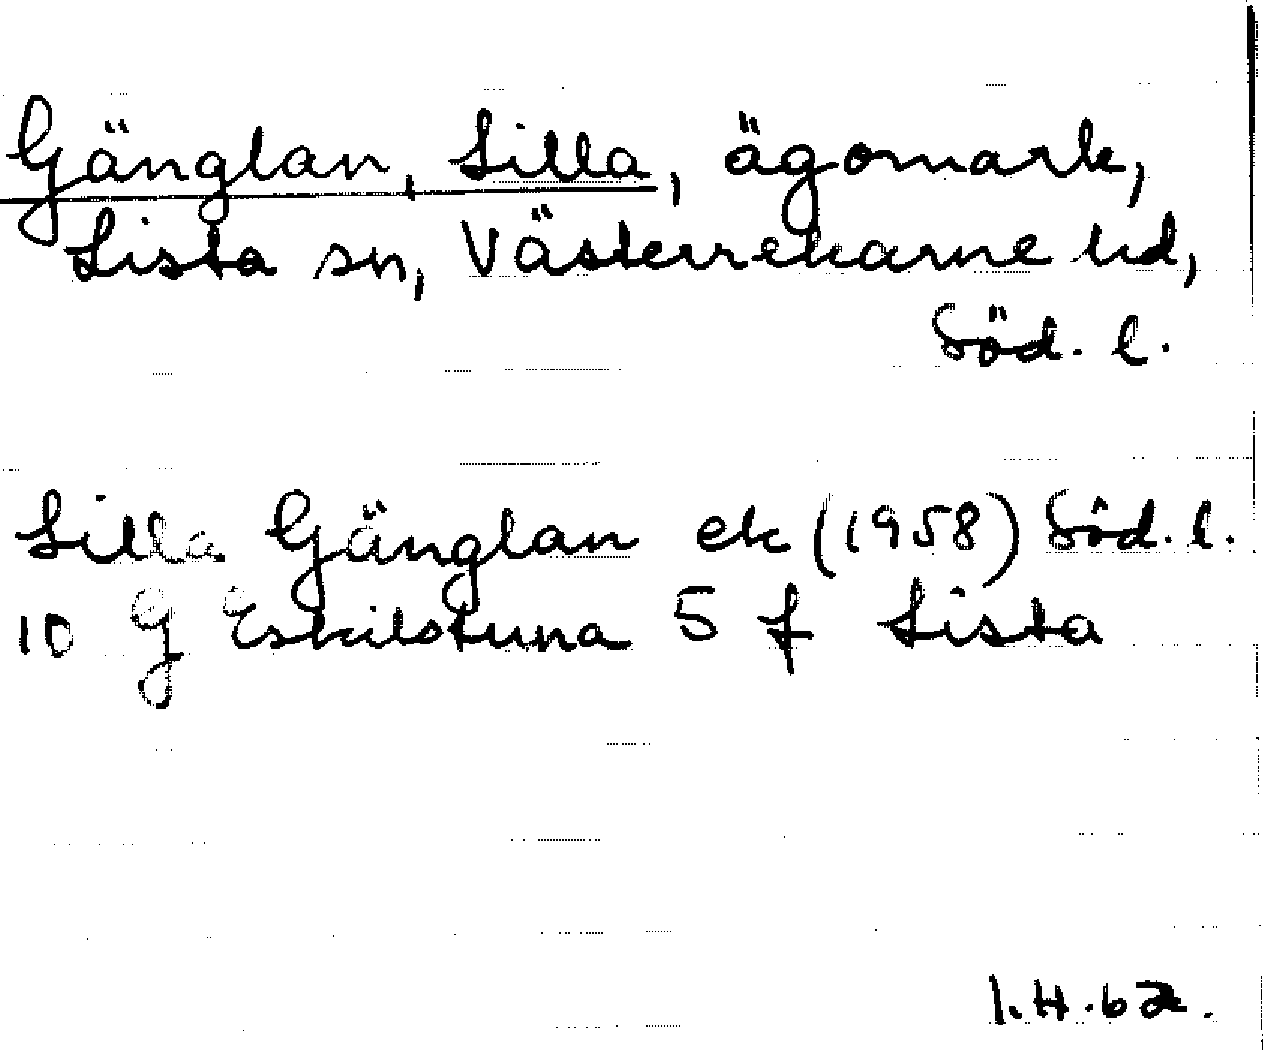 Gänglan, Lilla, ägomark,
Lista sn, Västerrekarne hd,
Söd. l.
Lilla Gänglan ek (1958) Söd. l.
10 G Eskilstuna 5 f Lista
I.H.62.